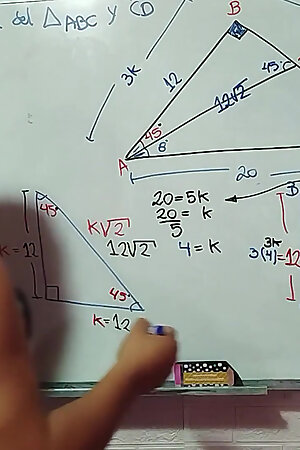 del △ABC y CD
B
3K
12
45°
12√2
45°
A
θ
20
20=5K
20/5 = K
4=K
3K
3(4)=12
45°
K√2
12√2
K=12
45°
K=12